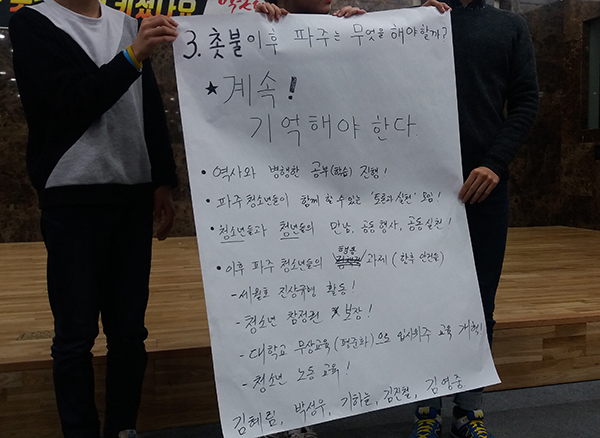 3. 촛불이후 파주는 무엇을 해야할까?
★ 계속!
기억해야 한다.
• 역사와 병행한 공부(학습) 진행!
• 파주 청소년들이 함께 할 수 있는 '토론과 실천' 모임!
• 청소년들과 청년들의 만남, 공동행사, 공동실천!
행동
• 이후 파주 청소년들의 과제 (향후 안건들)
- 세월호 진상규명 활동!
- 청소년 참정권 보장!
- 대학교 무상교육(평준화)으로 입시위주 교육 개혁!
- 청소년 노동 교육!
김혜림, 박성우, 기하늘, 김진철, 김영중